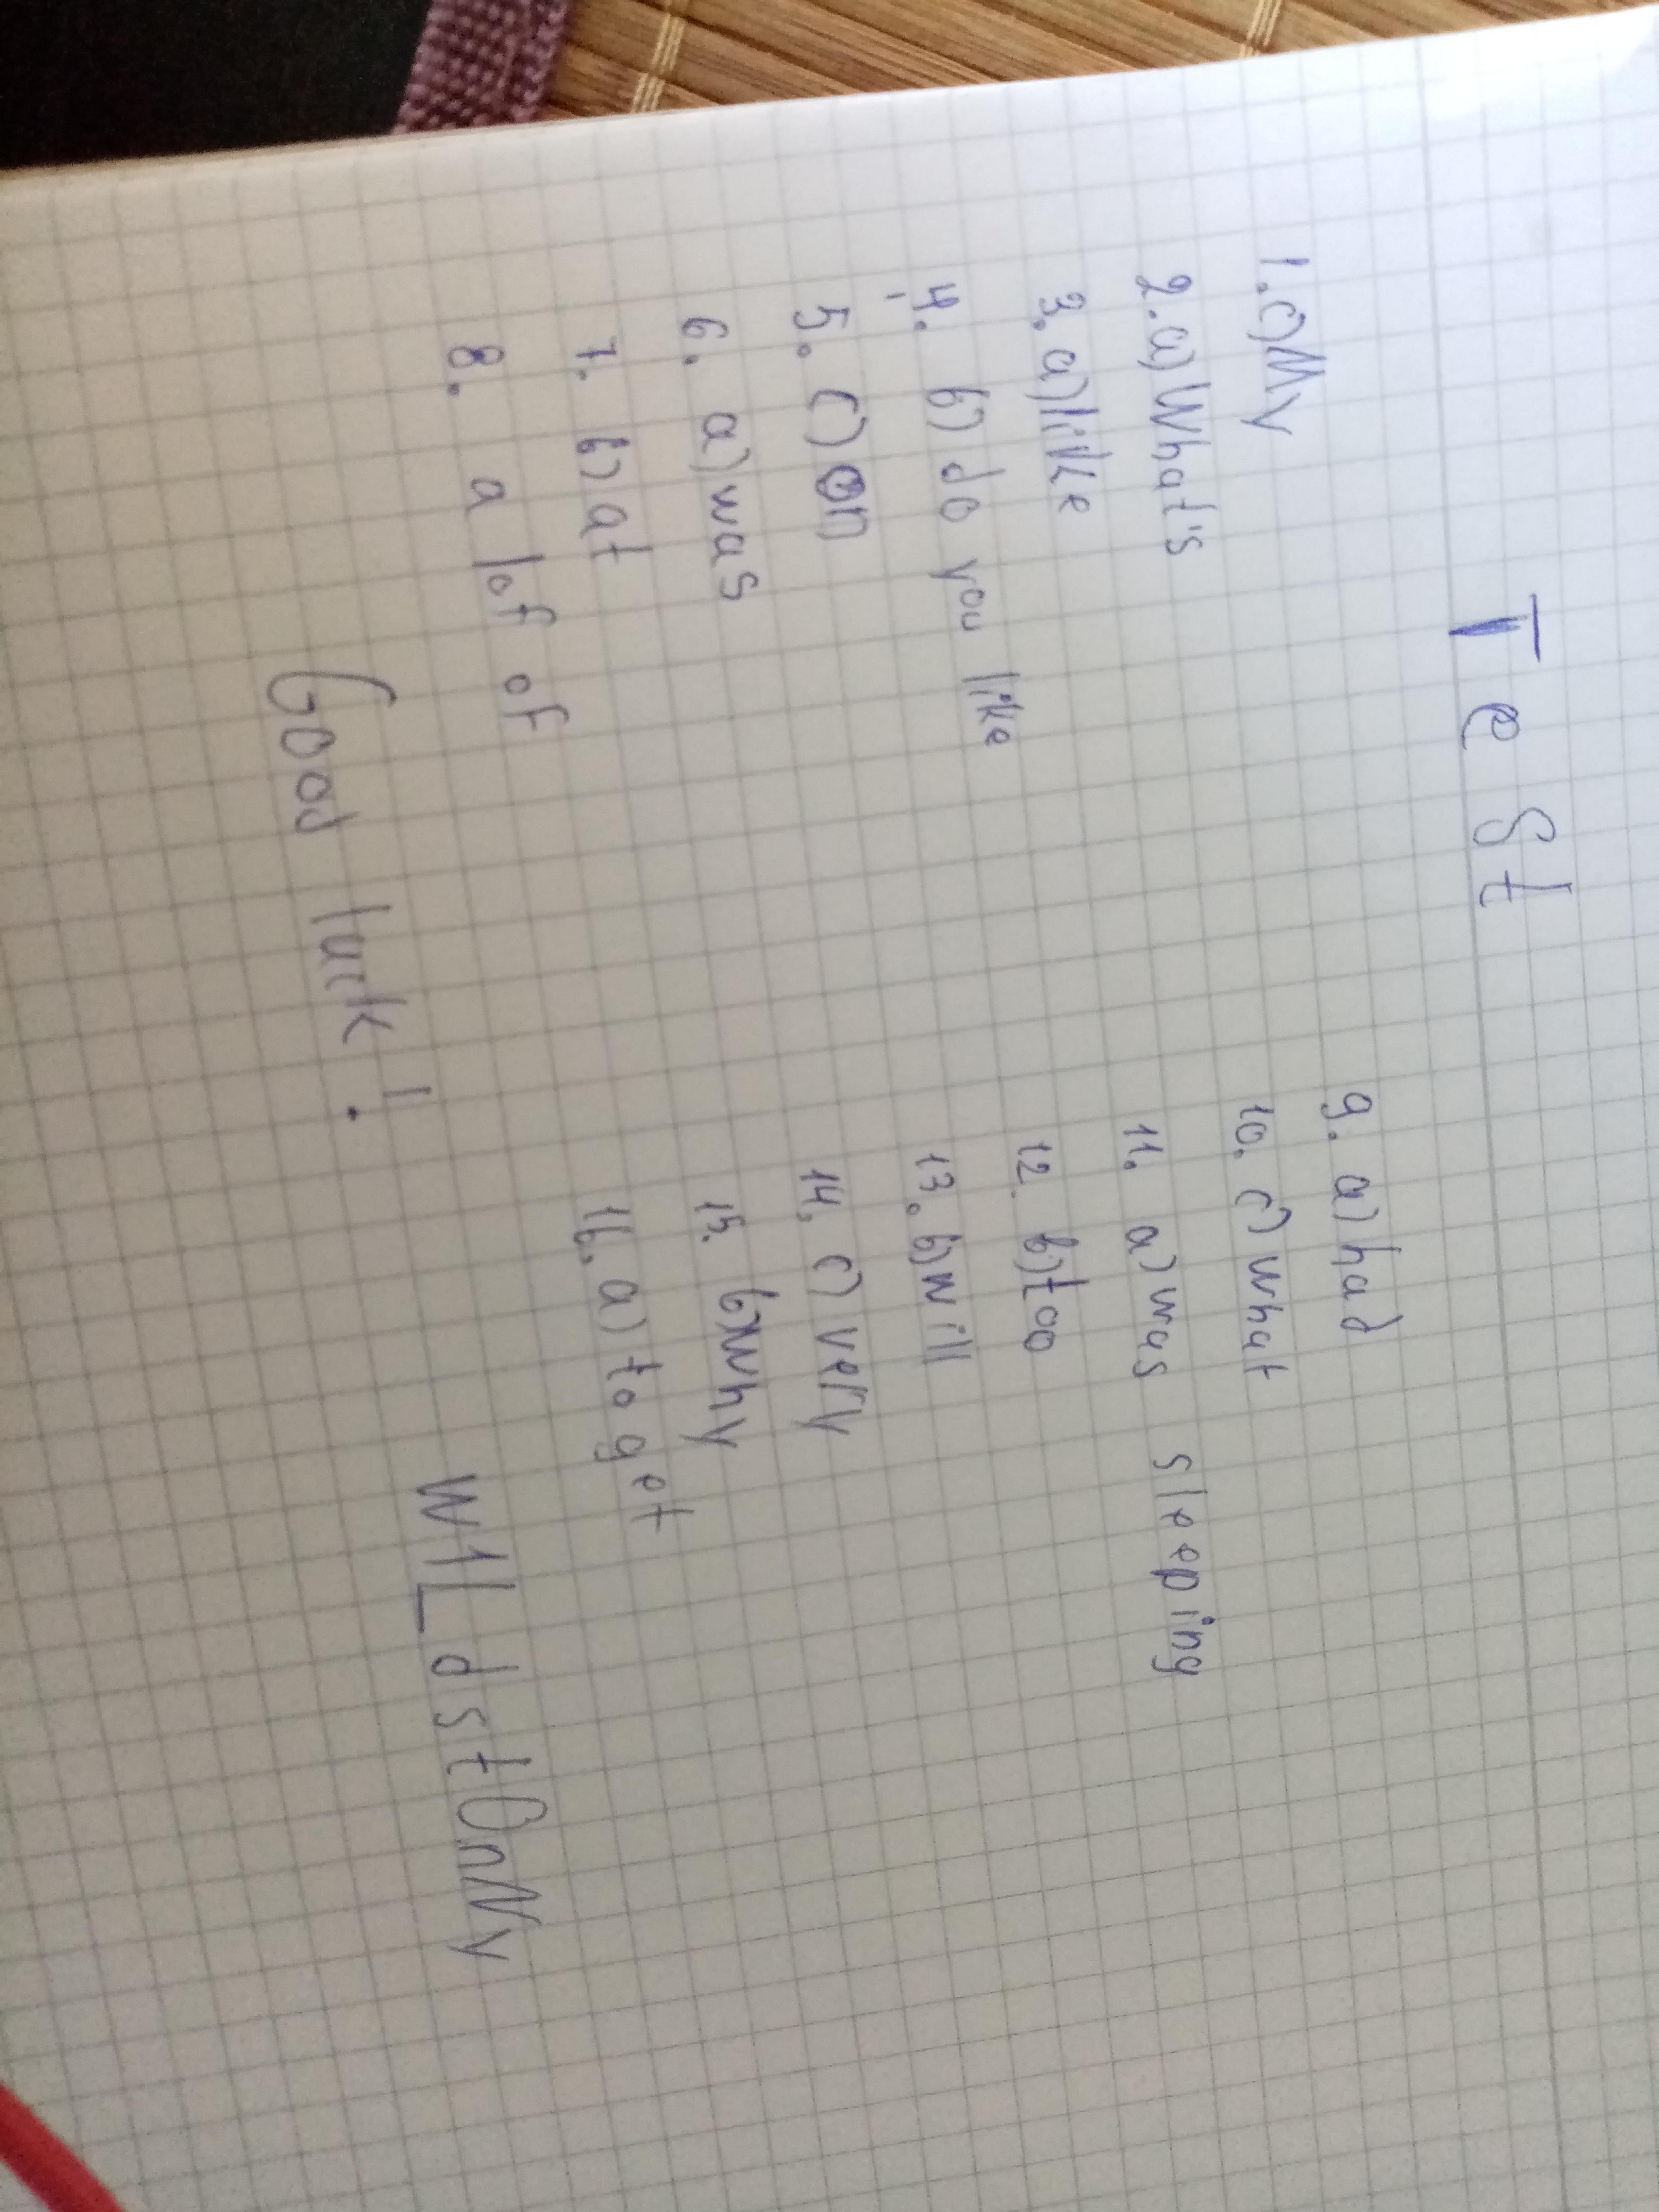 Test
1.c)My
2.a)What's
3.a)like
4. b) do you like
5. c) on
6. a) was
7. b) at
8. a lof of
Good luck!
9. a) had
10. c) what
11. a) was sleeping
12. b) too
13. b) will
14. c) very
15. b) why
16. a) to get
W1LdstOnNy